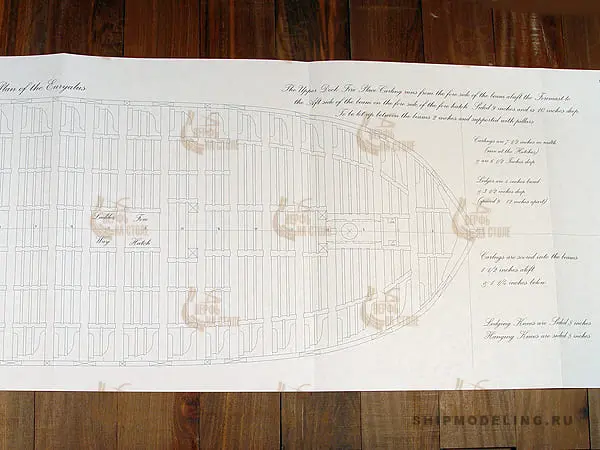 Plan of the Euryalus
The Upper Deck Fire Stove Carling runs from the fore side of the beam abaft the Foremast to
the Aft side of the beam on the fore side of the fore hatch. Sided 9 inches and is 10 inches deep
To be let up between the beams 2 inches and supported with pillars
Carlings are 7 1/2 inches in width
(one at the Hatches)
& are 6 1/2 Inches deep
Ledges are 4 inches broad
& 3 1/2 inches deep
(spaced 9 - 12 inches apart)
Ladder Fore
Way Hatch
Carlings are scored into the beams
1 1/2 inches aloft
& 1 1/4 inches below
Lodging Knees are Sided 5 inches
Hanging Knees are sided 5 inches
SHIPMODELING.RU